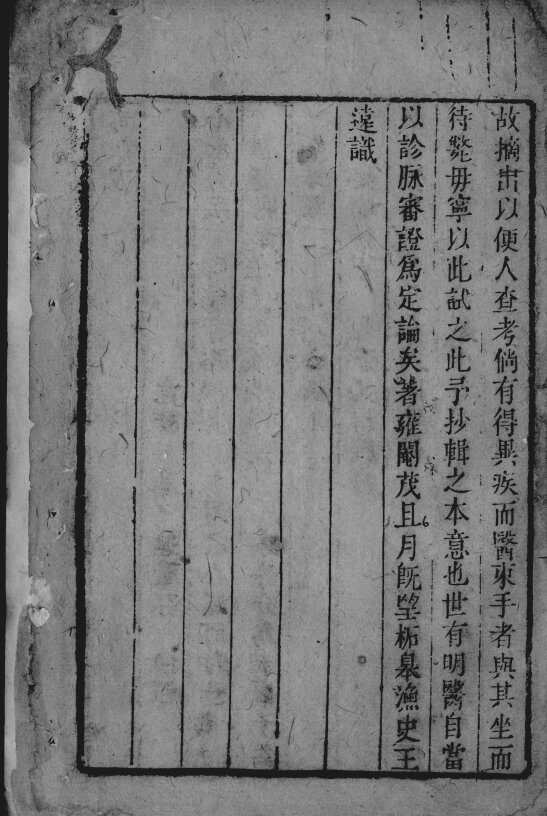 故摘出以便人查考倘有得異疾而醫束手者與其坐而
待斃毋寧以此試之此予抄輯之本意也世有明醫自當
以診脉審證爲定論矣著雍閹茂且月旣望柘皋漁史王
遠識